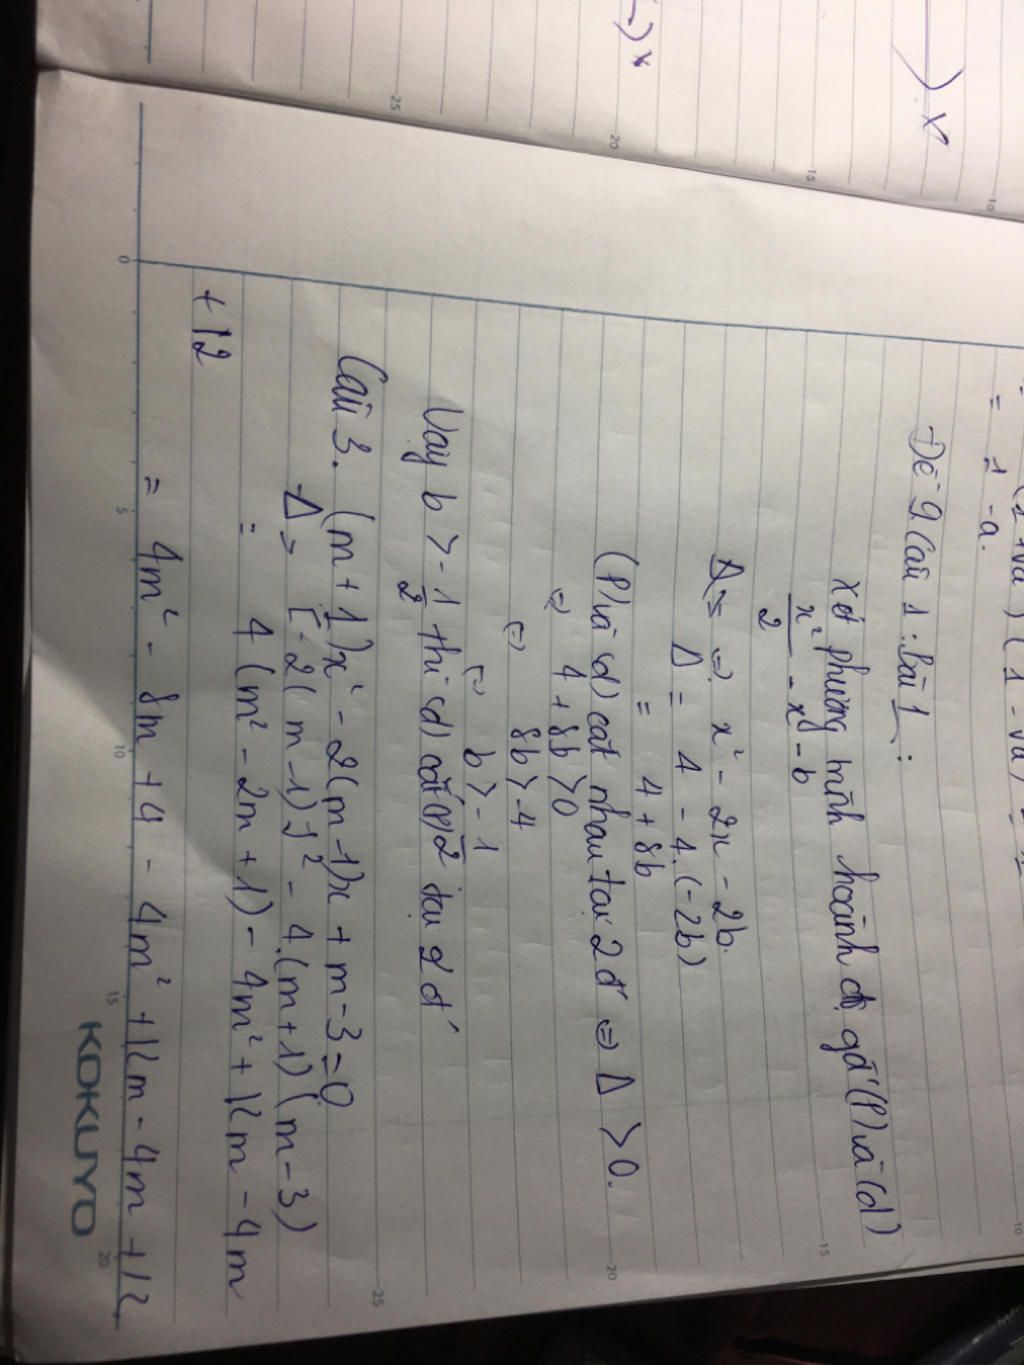 ) x
) x
(1 + √a) (1 - √a)
= 1 - a.
Đề 9. Câu 1 : Bài 1 :
Xét phương trình hoành độ gđ (P) và (d)
x²/2 - x - b
⇔ x² - 2x - 2b.
Δ = 4 - 4.(-2b)
= 4 + 8b
(P) và (d) cắt nhau tại 2 đ' ⇔ Δ > 0.
⇔ 4 + 8b > 0
⇔ 8b > -4
⇔ b > -1/2
Vậy b > -1/2 thì (d) cắt (P) tại 2 đ'
Câu 3. (m + 1)x² - 2(m - 1)x + m - 3 = 0
Δ = [-2(m - 1)]² - 4.(m + 1)(m - 3)
= 4(m² - 2m + 1) - 4m² + 12m - 4m
+ 12
= 4m² - 8m + 4 - 4m² + 12m - 4m + 12.
KOKUYO
0
5
10
15
20
25